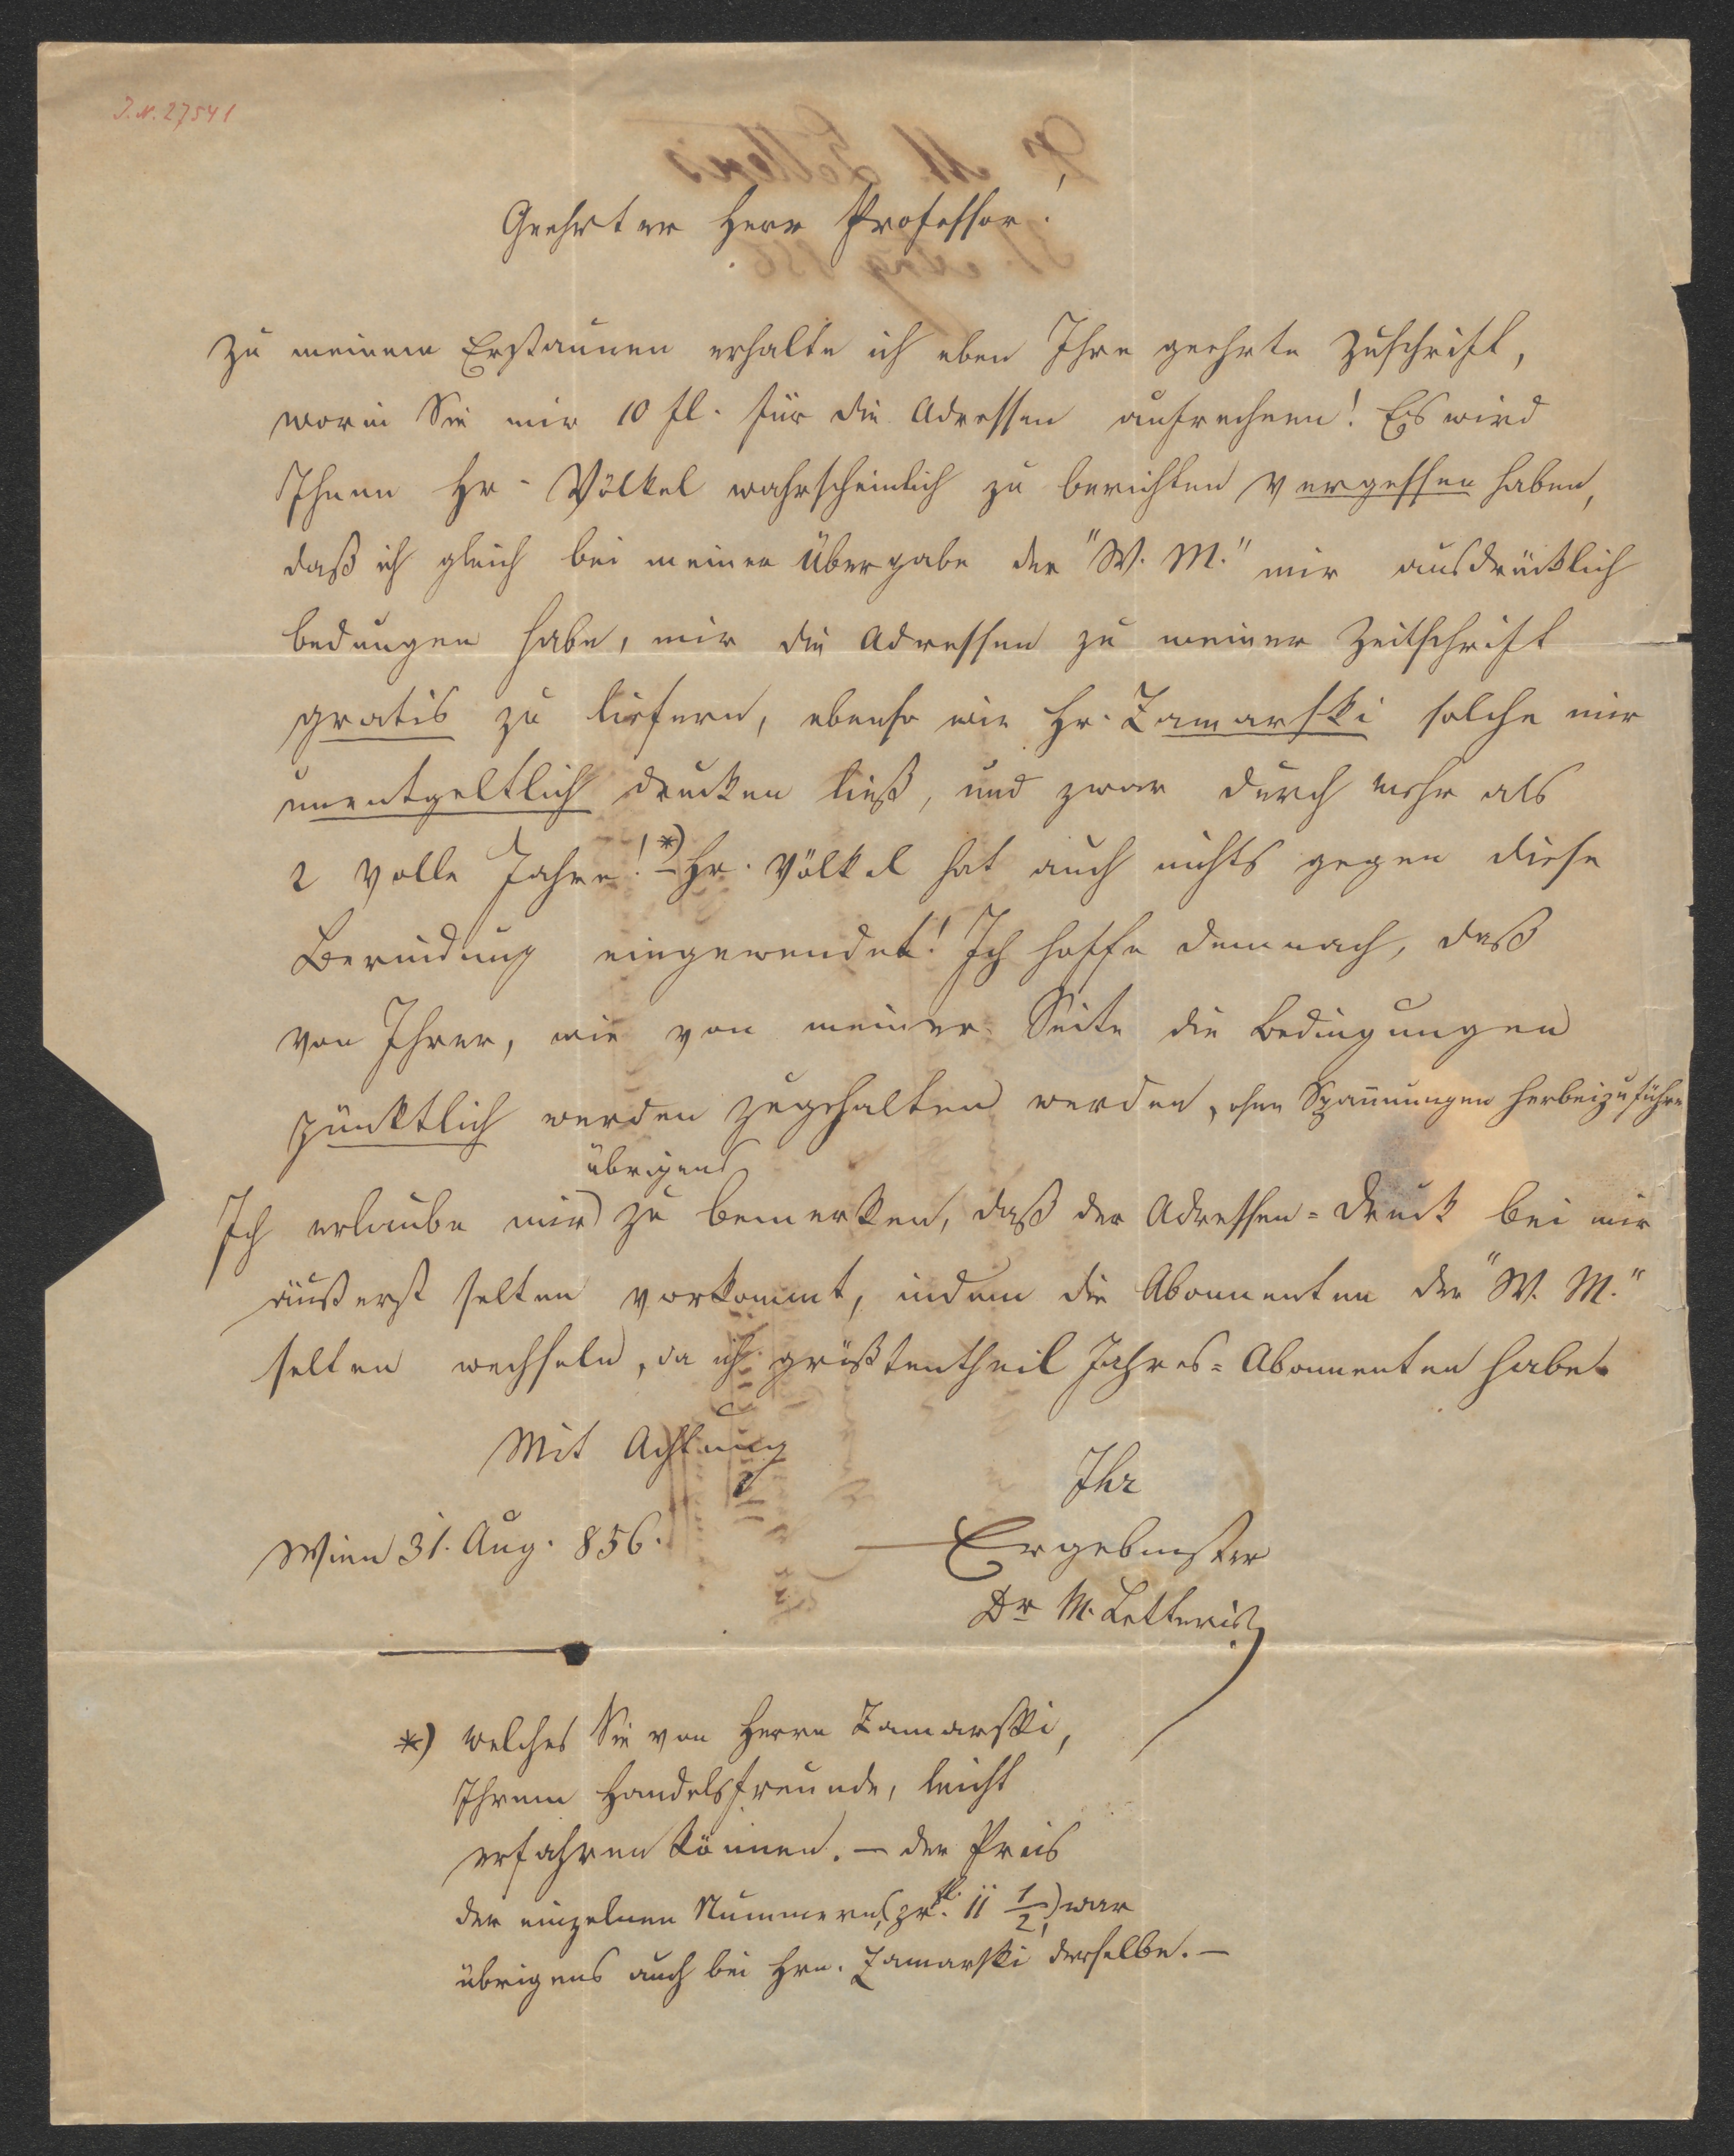 J. N. 27541
Geehrter Herr Professor!
Zu meinem Erstaunen erhalte ich eben Ihre geehrte Zuschrift,
worin Sie mir 10 fl. für die Adressen aufrechnen! Es wird
Ihnen Hr. Völkel wahrscheinlich zu berichten vergessen haben,
daß ich gleich bei meiner Übergabe der "W. M." mir ausdrücklich
bedungen habe, mir die Adressen zu meiner Zeitschrift
gratis zu liefern, ebenso wie Hr. Zamarski solche mir
unentgeltlich drucken ließ, und zwar durch mehr als
2 volle Jahre! *) – Hr. Völkel hat auch nichts gegen diese
eingewendet! Ich hoffe demnach, daß
von Ihrer, wie von meiner Seite die Bedingungen
pünktlich werden zugehalten werden, ohne Spannungen herbeizuführen
übrigens
Ich erlaube mir zu bemerken, daß der Adressen-Druck bei mir
äußerst selten vorkommt, indem die Abonnenten der "W. M."
selten wechseln, da ich größtentheil Jahres-Abonnenten habe.
Mit Achtung
Ihr
Wien 31. Aug. 856.
Ergebenster
Dr M. Letteris
*) welches Sie von Herrn Zamarski,
Ihrem Handelsfreunde, leicht
erfahren können. – der Preis
der einzelnen Nummern, (pr. fl. 11 1/2) war
übrigens auch bei Hrn. Zamarski derselbe. –